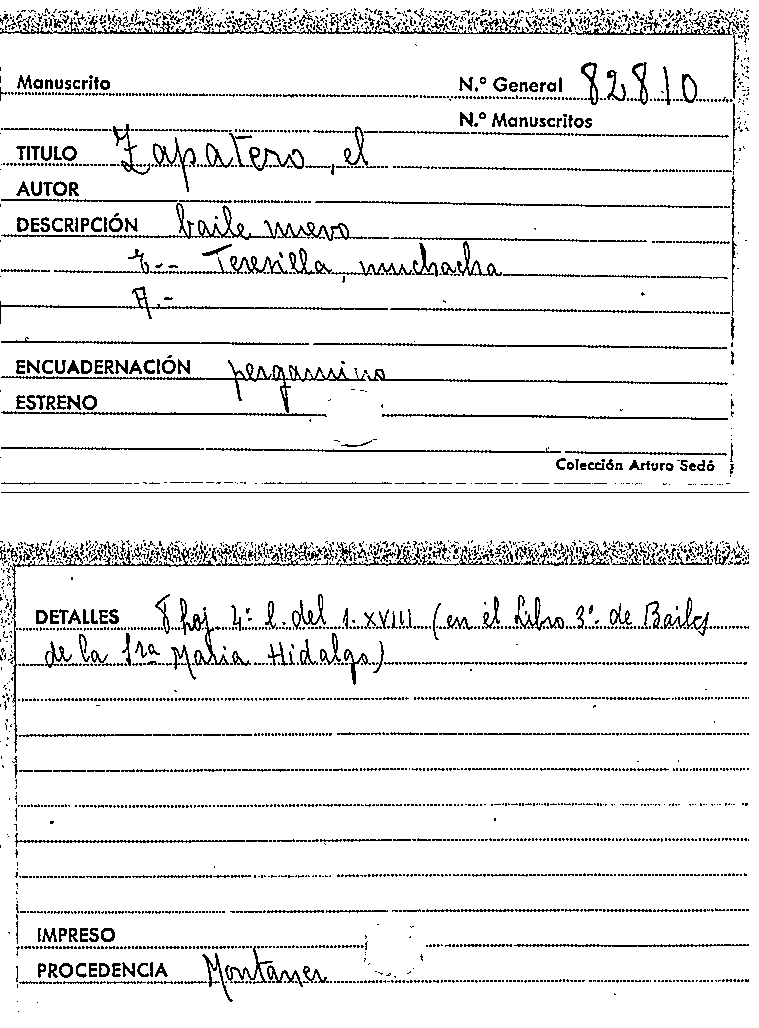 Manuscrito N.º General 82810
N.º Manuscritos
TITULO Zapatero, el
AUTOR
DESCRIPCIÓN baile nuevo
E.- Teresilla, muchacha
A.-
ENCUADERNACIÓN pergamino
ESTRENO
Colección Arturo Sedó
DETALLES 8 hoj. 4º l. del s. XVIII (en el Libro 3º de Bailes
de la Sra Maria Hidalgo)
IMPRESO
PROCEDENCIA Montaner